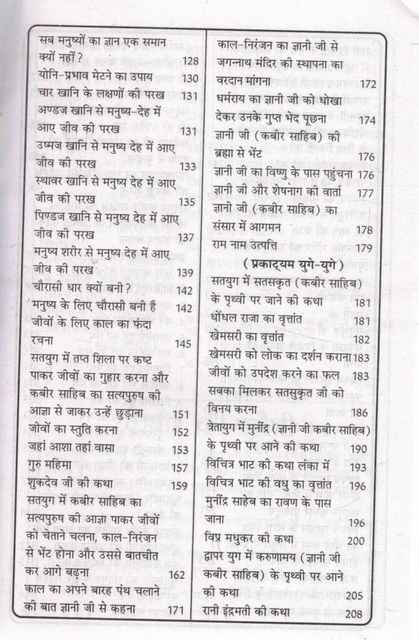 सब मनुष्यों का ज्ञान एक समान
क्यों नहीं? 128
योनि-प्रभाव मेटने का उपाय 130
चार खानि के लक्षणों की परख 131
अण्डज खानि से मनुष्य-देह में
आए जीव की परख 131
उष्मज खानि से मनुष्य देह में आए
जीव की परख 133
स्थावर खानि से मनुष्य देह में आए
जीव की परख 135
पिण्डज खानि से मनुष्य देह में आए
जीव की परख 137
मनुष्य शरीर से मनुष्य देह में आए
जीव की परख 139
चौरासी धार क्यों बनी? 142
मनुष्य के लिए चौरासी बनी हैं 142
जीवों के लिए काल का फंदा
रचना 145
सतयुग में तप्त शिला पर कष्ट
पाकर जीवों का गुहार करना और
कबीर साहिब का सत्यपुरुष की
आज्ञा से जाकर उन्हें छुड़ाना 151
जीवों का स्तुति करना 152
जहां आशा तहां वासा 153
गुरु महिमा 157
शुकदेव जी की कथा 159
सतयुग में कबीर साहिब का
सत्यपुरुष की आज्ञा पाकर जीवों
को चेताने चलना, काल-निरंजन
से भेंट होना और उससे बातचीत
कर आगे बढ़ना 162
काल का अपने बारह पंथ चलाने
की बात ज्ञानी जी से कहना 171
काल-निरंजन का ज्ञानी जी से
जगन्नाथ मंदिर की स्थापना का
वरदान मांगना 172
धर्मराय का ज्ञानी जी को धोखा
देकर उनके गुप्त भेद पूछना 174
ज्ञानी जी (कबीर साहिब) की
ब्रह्मा से भेंट 176
ज्ञानी जी का विष्णु के पास पहुंचना 176
ज्ञानी जी और शेषनाग की वार्ता 177
ज्ञानी जी (कबीर साहिब) का
संसार में आगमन 178
राम नाम उत्पत्ति 179
(प्रकाट्यम युगे-युगे)
सतयुग में सतसकृत (कबीर साहिब)
के पृथ्वी पर जाने की कथा 181
धोंधल राजा का वृत्तांत 181
खेमसरी का वृत्तांत 182
खेमसरी को लोक का दर्शन कराना 183
जीवों को उपदेश करने का फल 183
सबका मिलकर सतसुकृत जी को
विनय करना 186
त्रेतायुग में मुनींद्र (ज्ञानी जी कबीर साहिब)
के पृथ्वी पर आने की कथा 190
विचित्र भाट की कथा लंका में 193
विचित्र भाट की वधु का वृत्तांत 196
मुनींद्र साहेब का रावण के पास
जाना 196
विप्र मधुकर की कथा 200
द्वापर युग में करुणामय (ज्ञानी जी
कबीर साहिब) के पृथ्वी पर आने
की कथा 205
रानी इंद्रमती की कथा 208